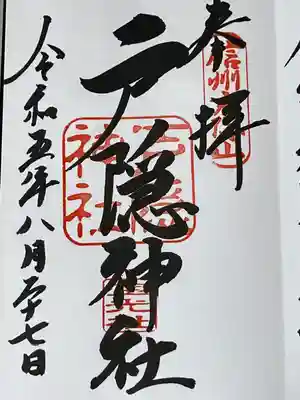 奉拝
信州戸隠山
戸隠神社
戸隠神社
令和五年八月二十七日